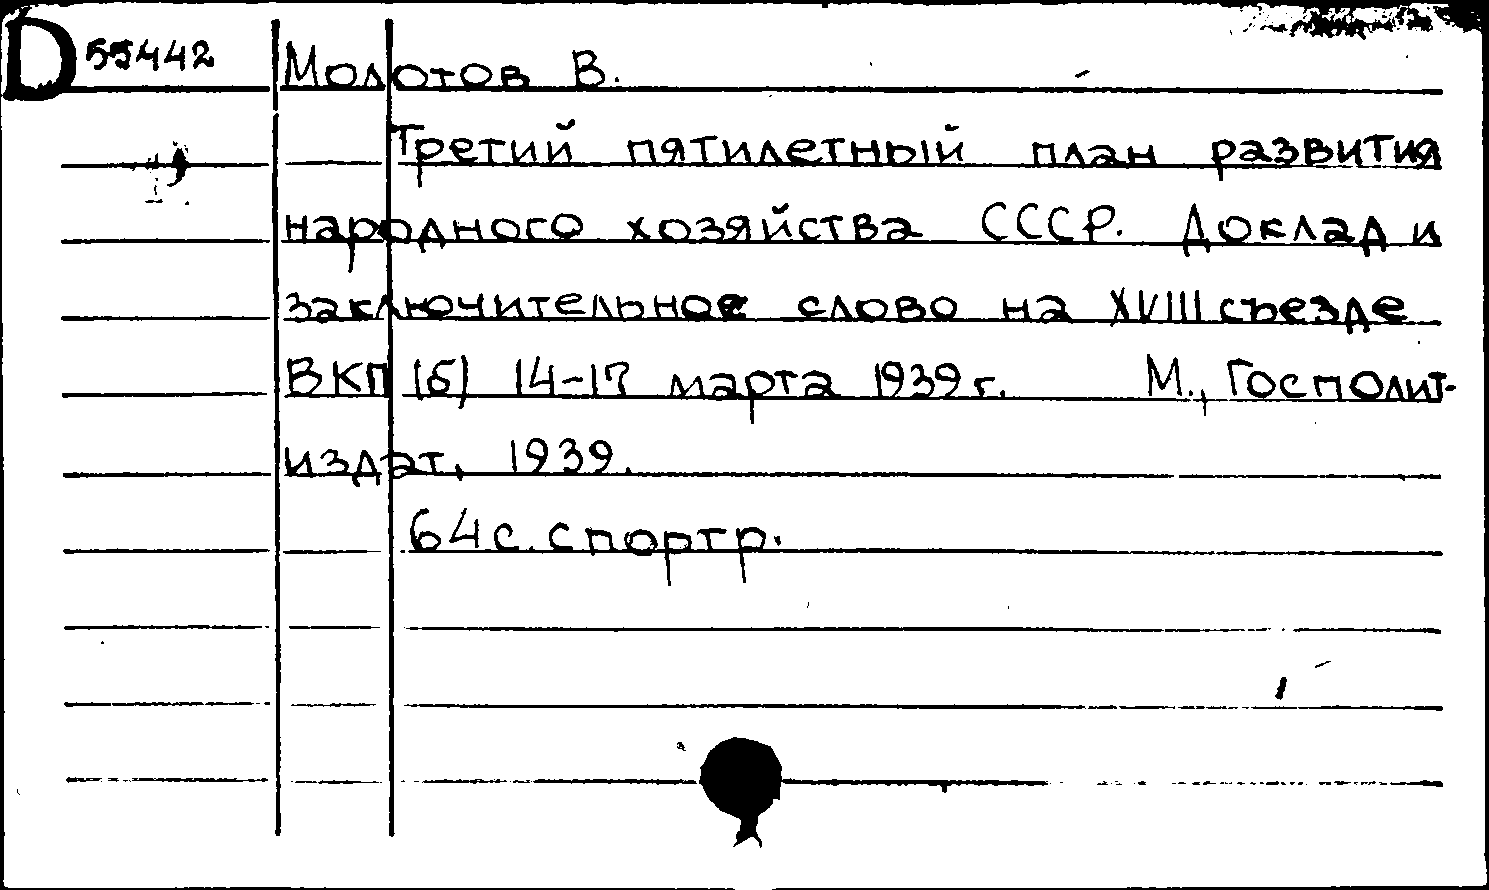 D 55442
Молотов В.
Третий пятилетный план развития
народного хозяйства СССР. Доклад и
заключительное слово на XVIII съезде
ВКП(б) 14-17 марта 1939 г. М., Госполит-
издат, 1939.
64 с. с портр.